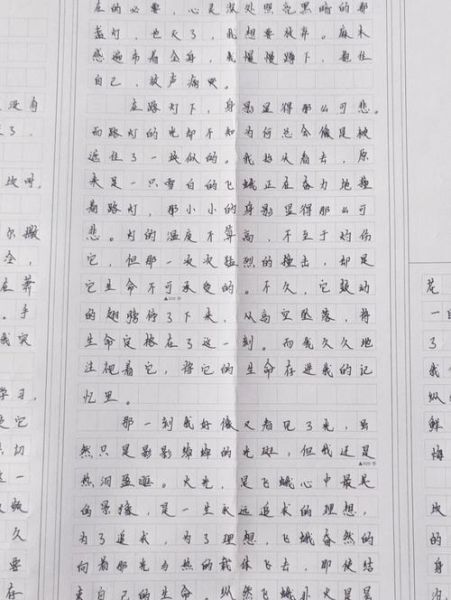 在的必要，心是深处照亮黑暗的那
盏灯，也灭了，我想要放弃。麻木
感遍布着全身，我慢慢蹲下，抱住
自己，放声痛哭。
在路灯下，身影显得那么可悲。
而路灯的光却不知为何总会像是被
遮住了一块似的。我抬头看去，原
来是一只雪白的飞蛾正在奋力地撞
着路灯，那小小的身影显得那么可
悲。灯的温度不算高，不至于灼伤
它，但那一次次猛烈的撞击，却是
它生命不可承受的。不久，它颤动
的翅膀停了下来，从高空坠落，将
生命定格在了这一刻。而我久久地
注视着它，将它的生命存进我的记
忆里。
那一刻我好像又看见了光，虽
然只是影影绰绰的光斑，但我还是
热泪盈眶。火光，是飞蛾心中最美
的景象，是一生永远追求的理想，
为了追求，为了理想，飞蛾奋然的
向着那光与热的载体飞去，即使结
束自己的生命。纵然飞蛾扑火是
没有
了。
尔撒
全，
在莽
手
我突
学习，
使它
切
这一
要
存
花
一
了
我
纵
鲜
悔
的
身